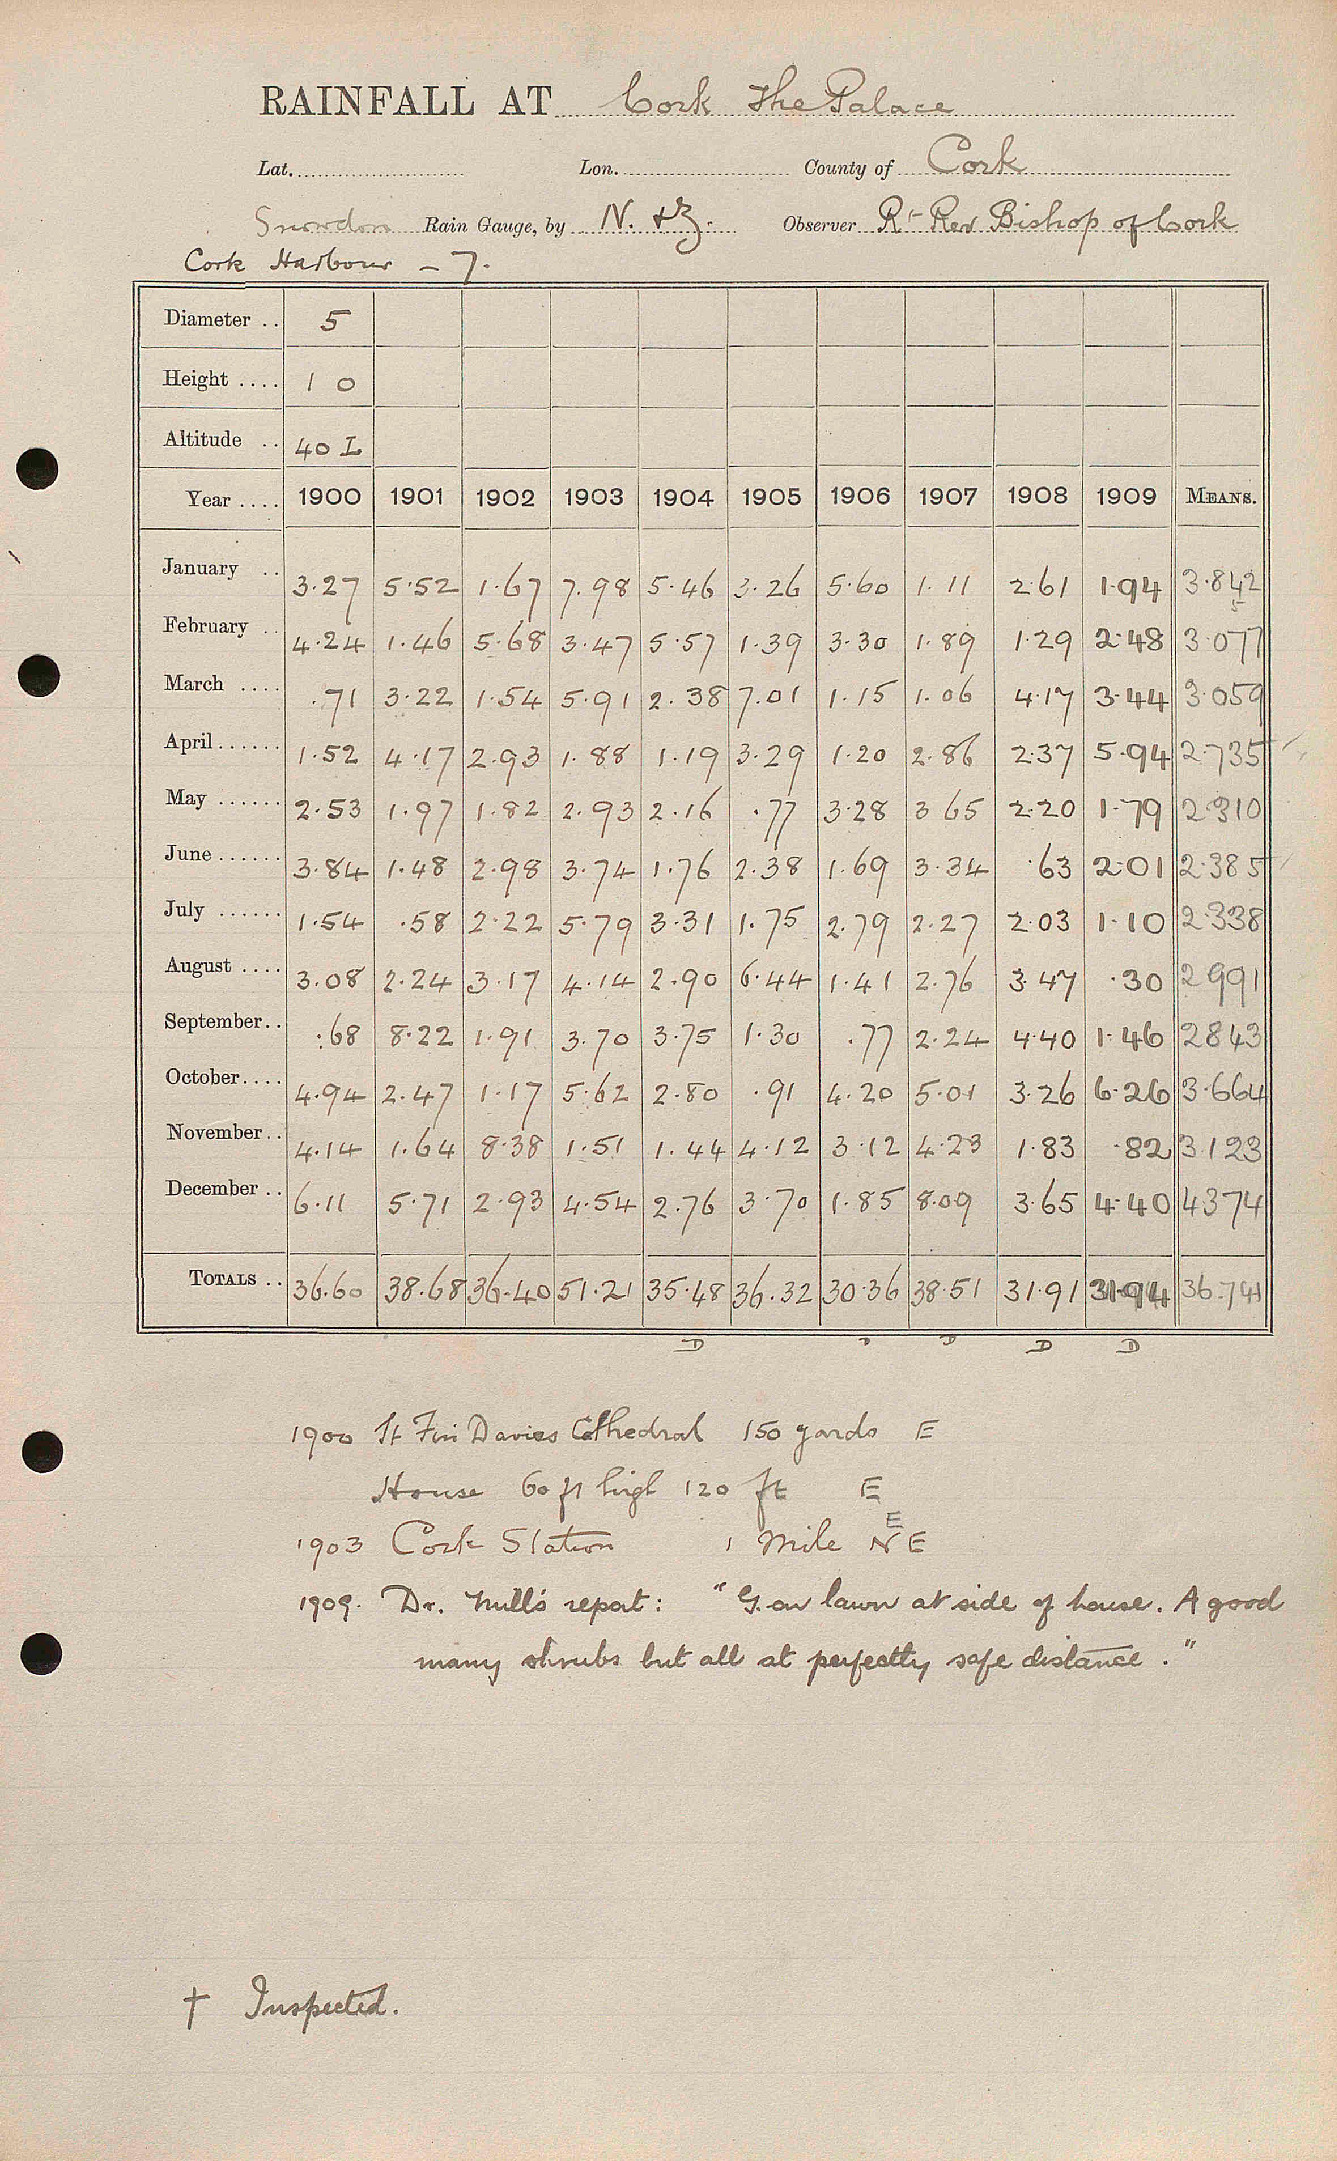 RAINFALL AT Cork The Palace
Lat. Lon. County of Cork
Snowdon Rain Gauge, by N. & Z. Observer Rt Rev Bishop of Cork
Cork Harbour – 7.
Diameter .. 5
Height .... 1 0
Altitude .. 40 L
Year .... 1900 1901 1902 1903 1904 1905 1906 1907 1908 1909 MEANS.
January .. 3.27 5.52 1.67 7.98 5.46 3.26 5.60 1.11 2.61 1.94 3.842
February .. 4.24 1.46 5.68 3.47 5.57 1.39 3.30 1.89 1.29 2.48 3.077
March .... .71 3.22 1.54 5.91 2.38 7.01 1.15 1.06 4.17 3.44 3.059
April...... 1.52 4.17 2.93 1.88 1.19 3.29 1.20 2.86 2.37 5.94 2.735
May ...... 2.53 1.97 1.82 2.93 2.16 .77 3.28 3.65 2.20 1.79 2.310
June...... 3.84 1.48 2.98 3.74 1.76 2.38 1.69 3.34 .63 2.01 2.385
July ...... 1.54 .58 2.22 5.79 3.31 1.75 2.79 2.27 2.03 1.10 2.338
August .... 3.08 2.24 3.17 4.14 2.90 6.44 1.41 2.76 3.47 .30 2.991
September.. .68 8.22 1.91 3.70 3.75 1.30 .77 2.24 4.40 1.46 2843
October.... 4.94 2.47 1.17 5.62 2.80 .91 4.20 5.01 3.26 6.26 3.664
November.. 4.14 1.64 8.38 1.51 1.44 4.12 3.12 4.23 1.83 .82 3.123
December .. 6.11 5.71 2.93 4.54 2.76 3.70 1.85 8.09 3.65 4.40 4374
TOTALS .. 36.60 38.68 36.40 51.21 35.48 36.32 30.36 38.51 31.91 31.94 36.741
D D D D
1900 St Fin Davies Cathedral 150 yards E
House 60 ft high 120 ft E
1903 Cork Station 1 Mile NEE
1909. Dr. Mill's report: "G. on lawn at side of house. A good
many shrubs but all at perfectly safe distance."
† Inspected.